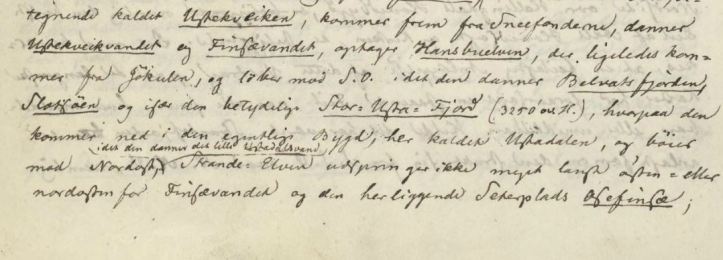 tegnende kaldet Ustekveiken, kommer frem fra Sneefonderne, danner
Ustekveikvandet og Finsævandet, optager Hansbuelven, der ligeledes kom=
mer fra Jökulen, og löber mod S.O. idet den danner Belvatsfjorden,
Slotfjöen og især den betydelige Stor=Ustra=Fjord (3250' ov. H.), hvorpaa den
kommer ned i den egentlige Bygd, her kaldet Ustadalen, og böier
idet den danner det lille Ustadalsvand
mod Nordost, Strande=Elven udspringer ikke meget langt östen= eller
nordosten for Finsævandet og den herliggende Seterplads Osefinsæ;